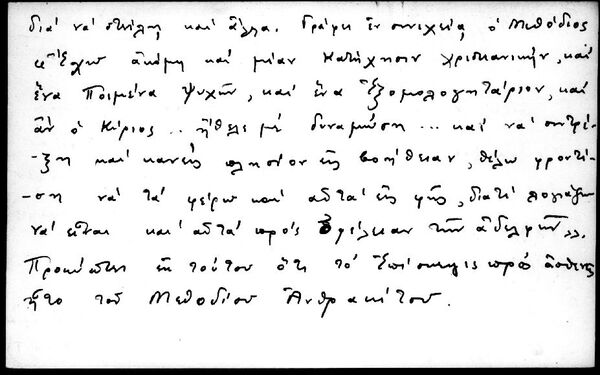 διά νά στείλῃ καί ἄλλα. Γράφει ἐν συνεχείᾳ ὁ Μεθόδιος
«Ἔχω ἀκόμη καί μίαν Κατήχησιν χριστιανικήν, καί
ἕνα Ποιμένα ψυχῶν, καί ἕνα Ἐξομολογητάριον, καί
ἄν ὁ Κύριος .. ἤθελε μέ δυναμώσῃ ... καί νά συντρέ-
-ξῃ καί κανείς πλησίον εἰς βοήθειαν, θέλω φροντί-
-σῃ νά τά φέρω καί αὐτά εἰς φῶς, διατί λογιάζω
νά εἶναι καί αὐτά πρός ὠφέλειαν τῶν ἀδελφῶν».
Προκύπτει ἐκ τούτου ὅτι τό Ἐπίσκεψις πρό ἀσθενεῖς
ἦτο τοῦ Μεθοδίου Ἀνθρακίτου.